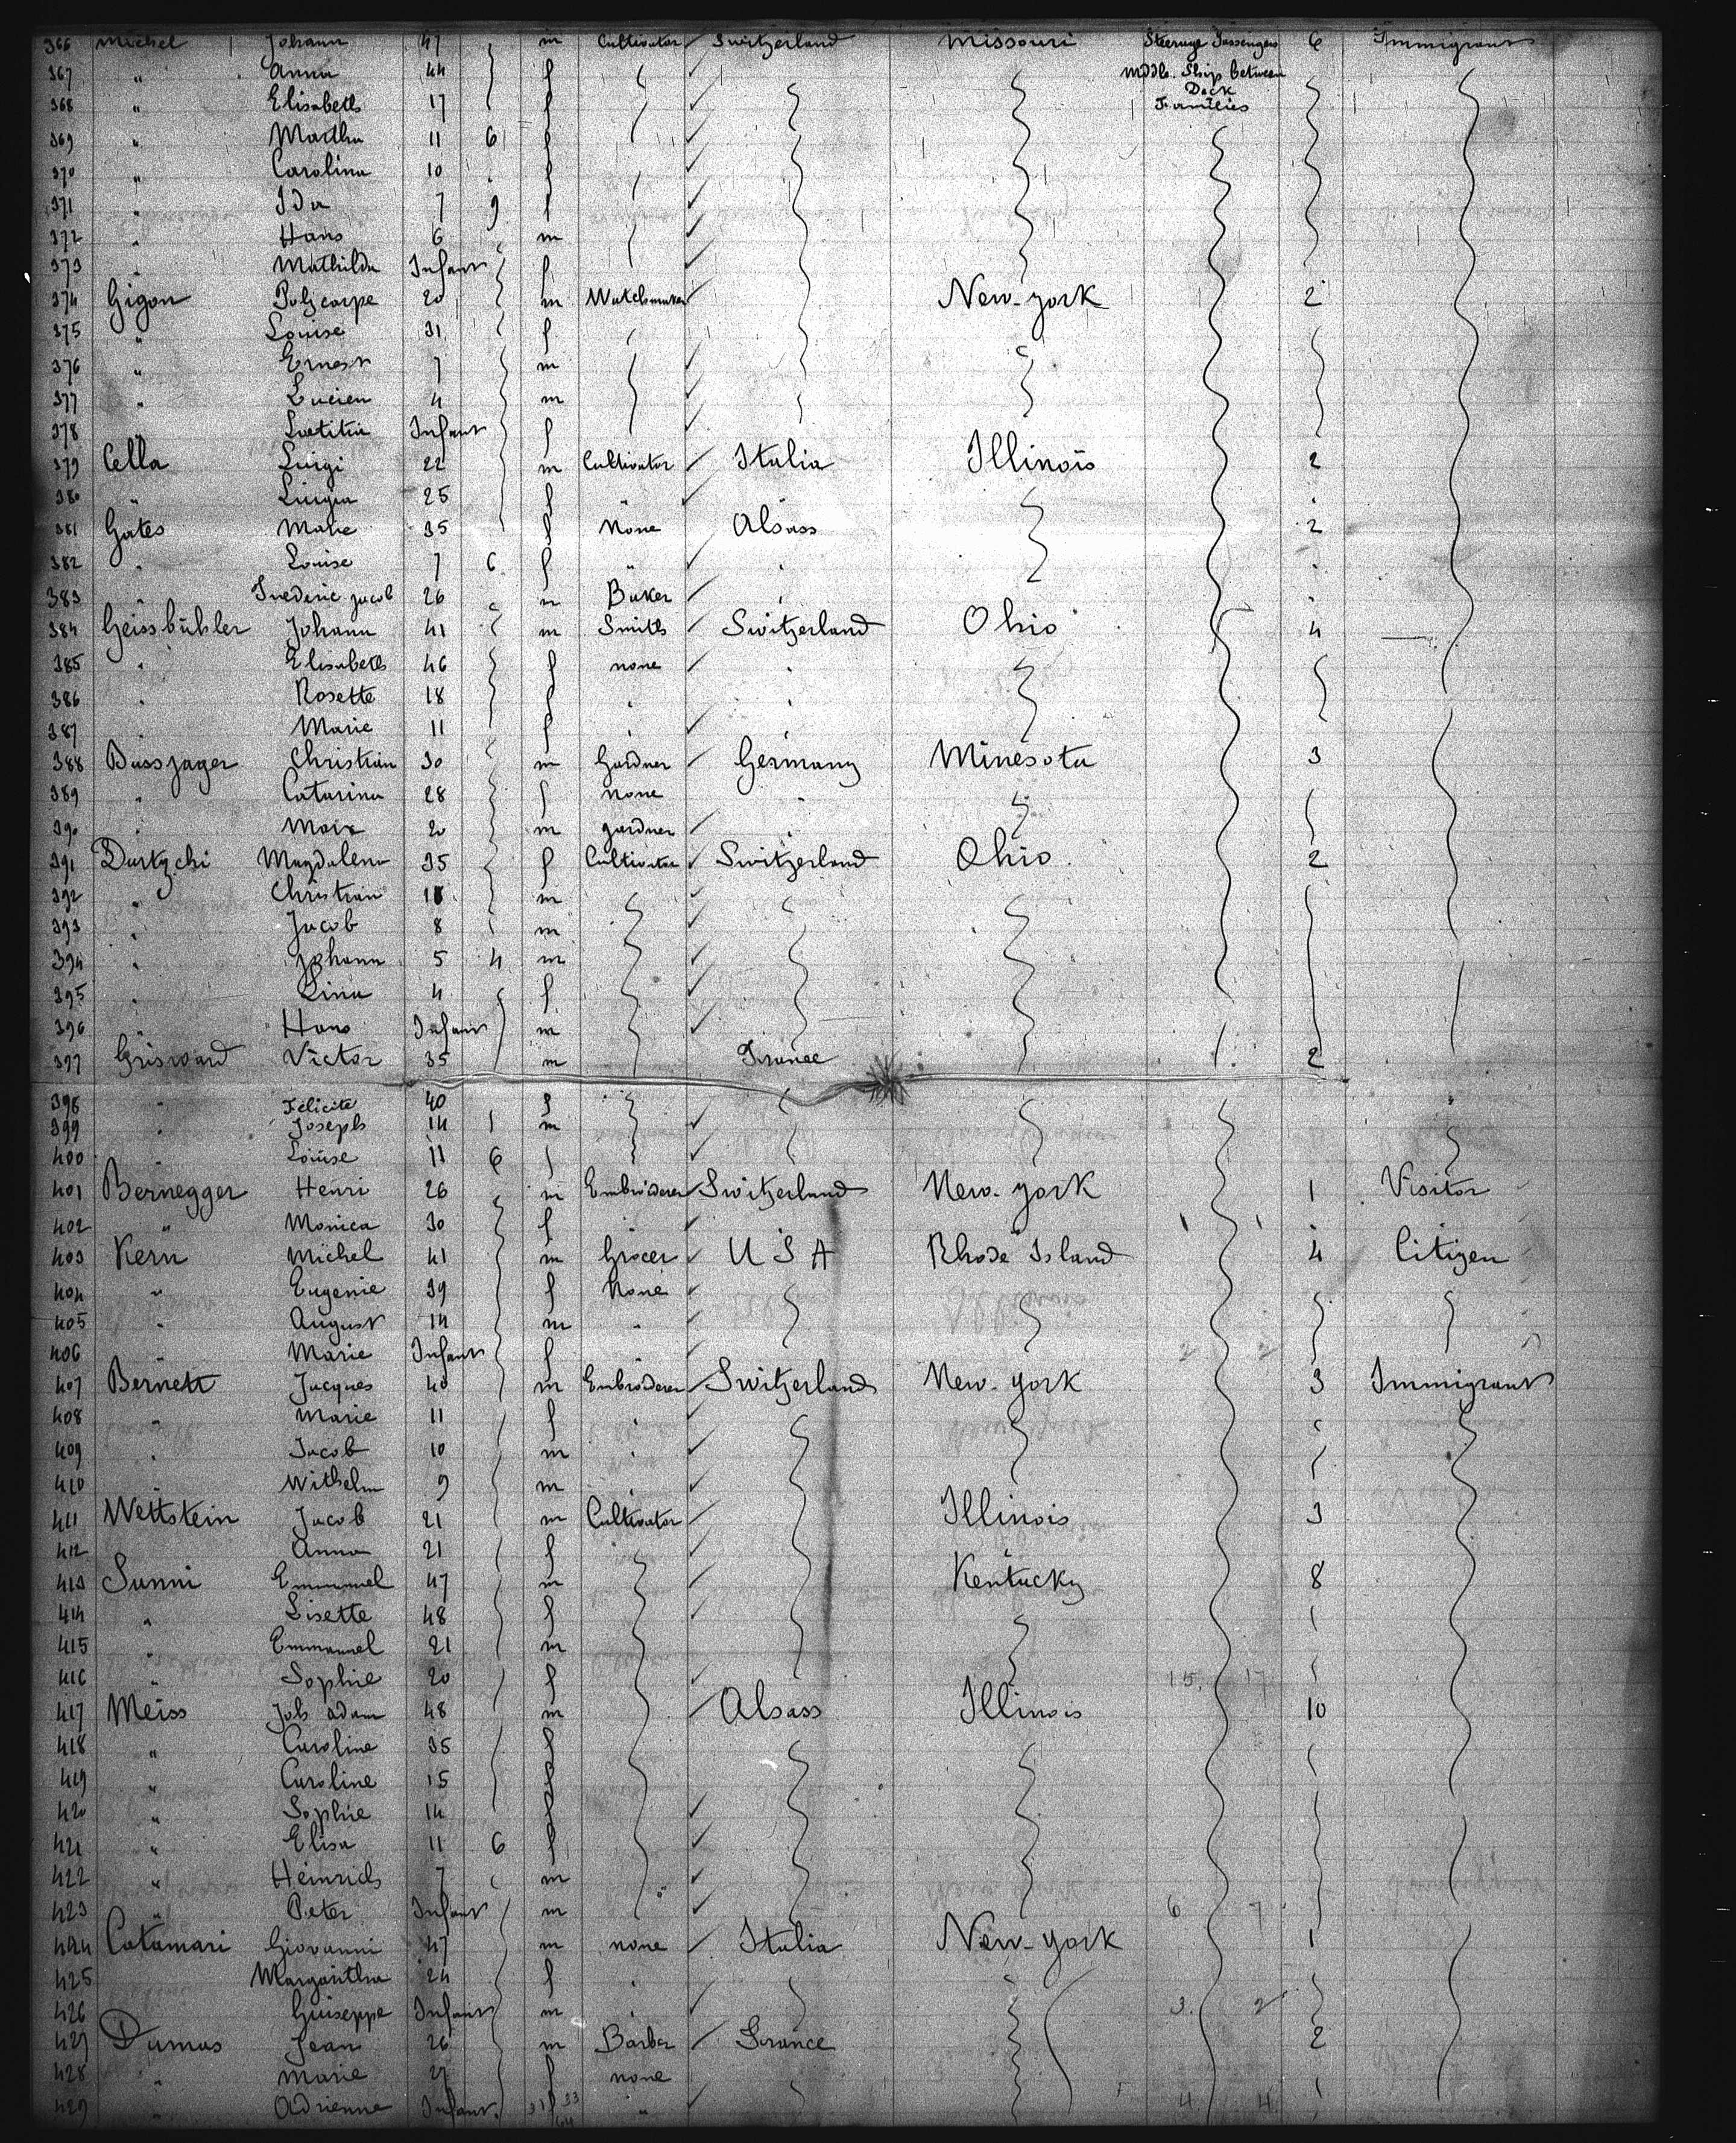 366 Michel Johann 47 m Cultivator Switzerland Missouri Steerage Passengers 6 Immigrant
367 " Anna 44 f Middle Ship between
Deck
368 " Elisabeth 17 f Families
369 " Martha 11 6 f
370 " Carolina 10 f
371 " Ida 7 9 f
372 " Hans 6 m
373 " Mathilda Infant f
374 Gigon Polycarpe 20 m Watchmaker New-york 2
375 " Louise 31 f
376 " Ernest 7 m
377 " Lucien 4 m
378 " Laetitia Infant f
379 Cella Luigi 22 m Cultivator Italia Illinois 2
380 " Luigia 25 f "
381 Gates Marie 35 f None Alsass 2
382 " Louise 7 6 f "
383 " Frederic Jacob 26 m Baker "
384 Geissbühler Johann 41 m Smith Switzerland Ohio 4
385 " Elisabeth 46 f none "
386 " Rosette 18 f " "
387 " Marie 11 f " "
388 Bussjager Christian 30 m Gardner Germany Minesota 3
389 " Catarina 28 f none "
390 " Max 20 m gardner "
391 Dartzchi Magdalena 35 f Cultivator Switzerland Ohio 2
392 " Christian m
393 " Jacob 8 m
394 " Johann 5 4 m
395 " Lina 4 f
396 Hans Infant m
397 Grisward Victor 35 m France 2
398 " Félicité 40 f
399 " Joseph 14 1 m
400 " Louise 11 6 f
401 Bernegger Henri 26 m Embroderer Switzerland New-york 1 Visitor
402 " Monica 30 f "
403 Kern Michel 41 m Grocer U S A Rhode Island 4 Citizen
404 " Eugenie 39 f None
405 " August 14 m "
406 " Marie Infant f "
407 Bernett Jacques 40 m Embroderer Switzerland New-york 3 Immigrant
408 " Marie 11 f "
409 " Jacob 10 m "
410 " Wilhelm 9 m "
411 Wettstein Jacob 21 m Cultivator Illinois 3
412 Anna 21 f
413 Sunni Emmanuel 47 m Kentucky 8
414 " Lisette 48 f
415 " Emmanuel 21 m
416 " Sophie 20 f 15 17
417 Meiss Joh adam 48 m Alsass Illinois 10
418 " Caroline 35 f
419 " Caroline 15 f
420 " Sophie 14 f
421 " Elisa 11 6 f
422 " Heinrich 7 m
423 " Peter Infant m 6 7
424 Catamari Giovanni 47 m none Italia New-york 1
425 Margaritha 24 f "
426 Guiseppe Infant m " 3 2
427 Dumas Jean 26 m Barber France 2
428 " Marie 27 f none
429 " Adrienne Infant f " 4 4